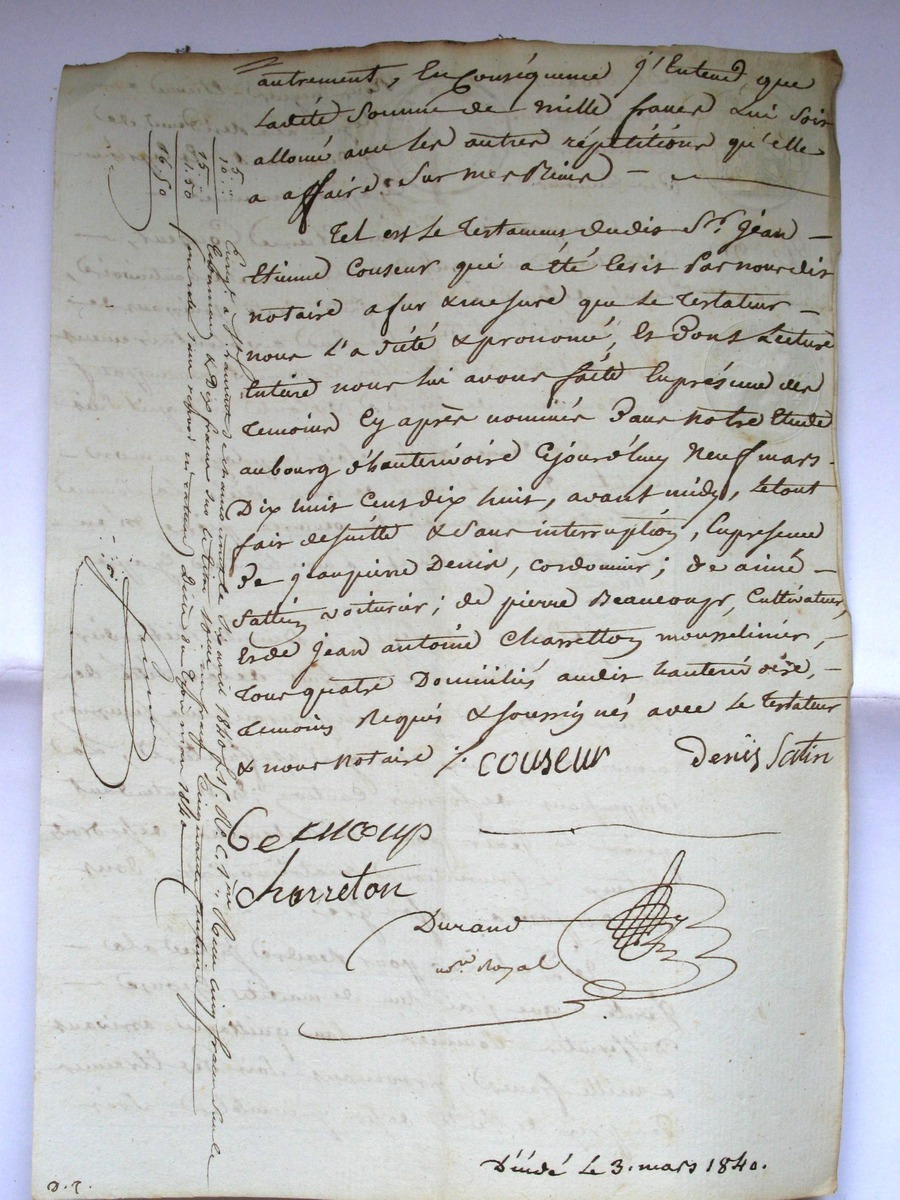 autrement, En Conséquence j'Entend que
Ladité Somme de mille francs Lui soit
alloué avec les autres répétitions qu'elle
a affaire Sur mes Biens —
Tel est Le Testament dudit Sr. Jéan —
Etienne Couseur qui a été Ecrit Par nous dit
notaire a fur & mesure que Le Testateur —
nous L'a dicté & prononcé, Et Dont Lecture
Entiere nous lui avons faite En présence des
Temoins Cy après nommés Dans Notre Etude
au bourg d'hauterivoire Cejourd'huy Neuf mars
Dix huit Cent dix huit, avant midy, Le tout
fait de suitte & sans interruption, En presence
De jean pierre Denis, cordonnier; de aimé —
Sattin voiturier; de pierre Beaucoup, Cultivateur,
Et de jean antoine Charretton mousselinier, —
Tous quatre Domiciliés audit hauterivoire, —
Temoins Requis & soussignés avec Le Testateur
& nous Notaire ./. couseur Denis Satin
Beaucoup
Charreton
Durand
nore. Royal
Décédé Le 3. mars 1840.
D. 2.
5 ..
10 ..
15 ..
1.50
16.50
Enregt. a St. avril 1840 fo. 15 Ro. C. 1re. Reçu cinq francs pour le
testament & Dix francs Cinquante centimes
Décès du trois mars 1840